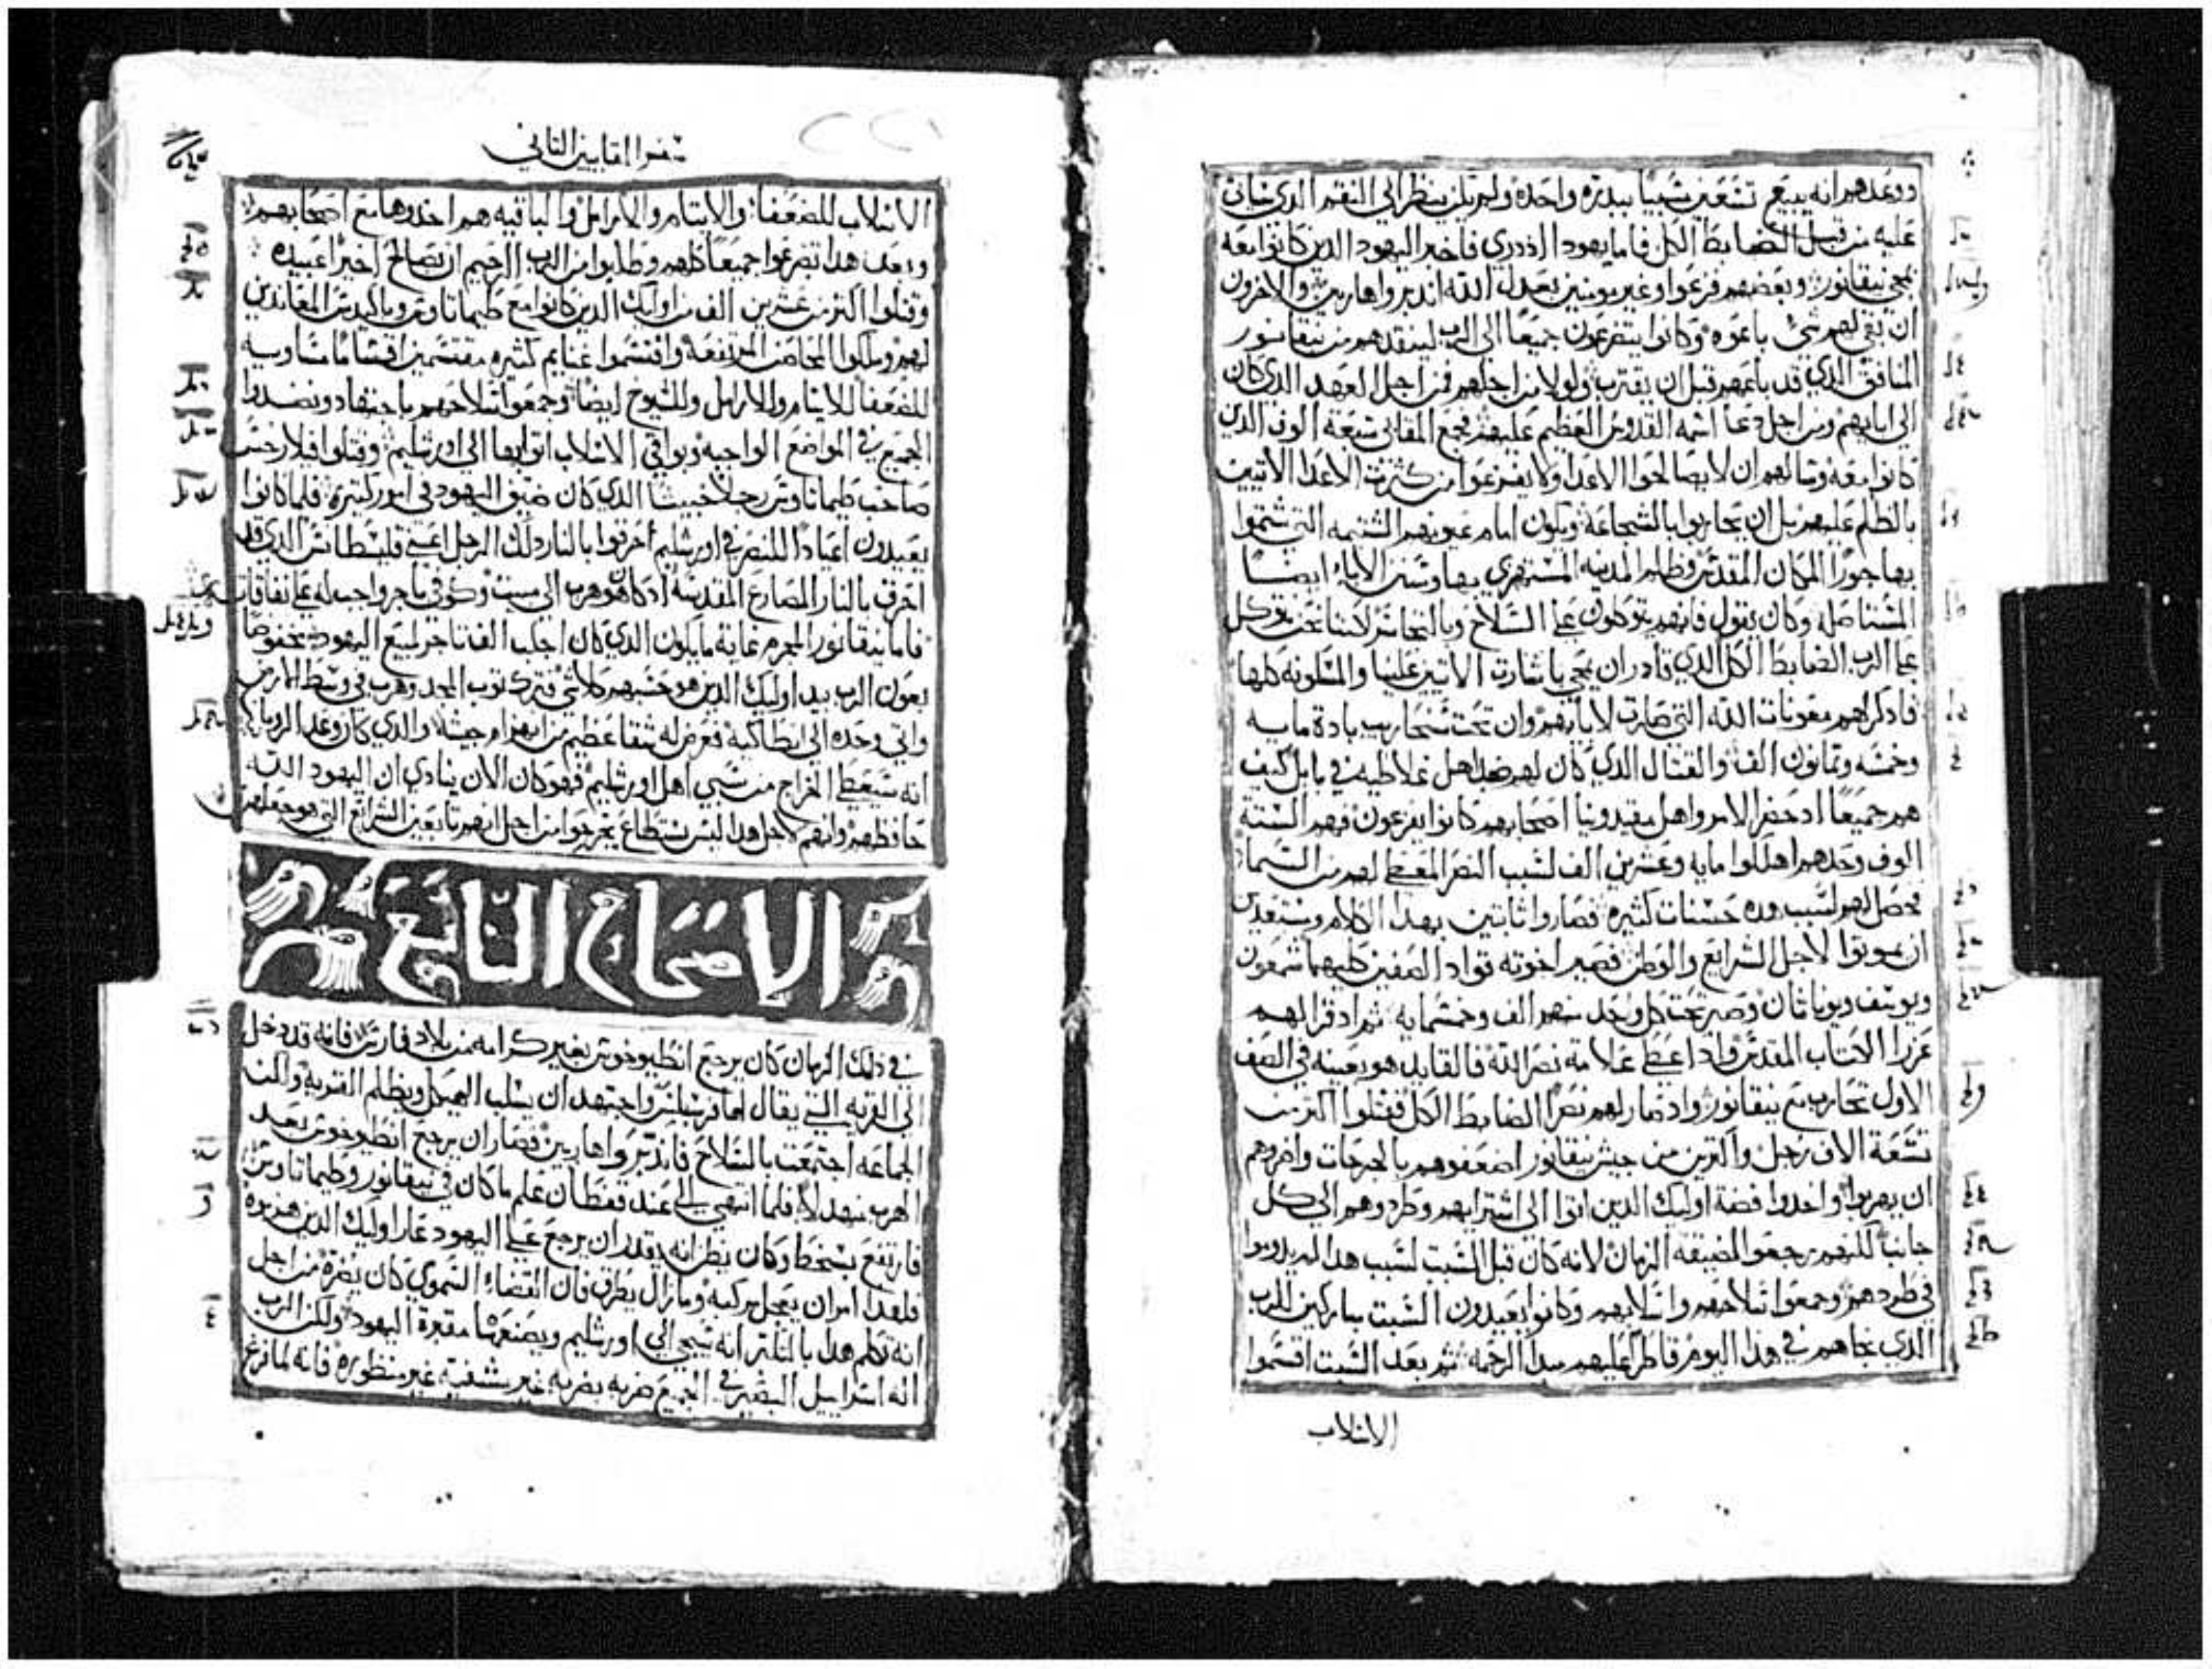 ووعدهم انه يبيع تسعين سبيا ببدره واحده ولم يكن ينظر الي النقم الذي ياتي
عليه من قبل الضابط الكل فاما يهودا اذ دري فاخبر اليهود الدين كانوا معه
بمجي نيقانور وبعضهم فزعوا وغير مومنين بعدل الله اندبروا هاربين والاخرون
ان بقي لهم شي باعوه وكانوا يتضرعون جميعا الي الرب لينقدهم من نيقانور
المنافق الدي قد باعهم قبل ان يقترب ولو لا من اجلهم فمن اجل العهد الدي كان
الي ابايهم ومن اجل دعا اسمه القدوس العظيم عليهم فجمع المقابي سبعة الوف الدين
كانوا معه وسالهم ان لا يصالحوا الاعدا ولا يفزعوا من كثرت الاعدا الاتيين
بالظلم عليهم بل ان يحاربوا بالشجاعة ويكون امام عيونهم الشتيمه التي شتموا
بها جورا المكان المقدس وظلم المدينه المستهزي بها وسنن الاباء ايضا
المستاصله وكان يقول فانهم يتوكلون علي السلاح وبالتجاسر لكننا نحن نتوكل
علي الرب الضابط الكل الدي قادر ان يمحي باشارت الاتيين علينا والمسكونه كلها
فادكراهم معونات الله التي صارت لابايهم وان تحت سنحاريب بادة مايه
وخمسه وتمانون الف والقتال الدي كان لهم ضد اهل غلاطيه في بابل كيف
هم جميعا اد حضر الامر واهل مقيدونيا اصحابهم كانوا يفزعون فهم الستة
الوف وحدهم اهلكوا مايه وعشرين الف لسبب النصر المعطي لهم من السما
فحصل لهم لسبب هده حسنات كثيره فصاروا ثابتين بهدا الكلام ومستعدين
ان يموتوا لاجل الشرايع والوطن فصير اخوته قواد الصفين كليهما شمعون
ويوسف ويوناثان وصير تحت كل واحد منهم الف وخمسمايه ثم اد قرا لهم
عزرا الكتاب المقدس واد اعطي علامة نصر الله فالقايد هو بعينه في الصف
الاول تحارب مع نيقانور واد صار لهم نصرا الضابط الكل فقتلوا اكثر من
تسعة الاف رجل واكثرين من جيش نيقانور اضعفوهم بالجرحات واضروهم
ان يهربوا واخدوا فضة اوليك الدين اتوا الي اشترايهم وطردوهم الي كل
جانبا لكنهم رجعوا لمضيقة الزمان لانه كان قبل السبت لسبب هدا لم يدوموا
في طردهم وجمعوا سلاحهم واسلابهم وكانوا يعيدون السبت مباركين للرب
الدي نجاهم في هدا اليوم قاطرا عليهم مبدا الرحمه ثم بعد السبت اقسموا
الاسلاب
سفر المقابيين التاني
الاسلاب للضعفا والايتام والارامل والباقيه هم اخدوها مع اصحابهم
وبعد هدا تضرعوا جميعا كلهم وطلبوا من الرب الرحيم ان يصالح اخيرا عبيده
وقتلوا اكثر من عشرين الف من اوليك الدين كانوا مع طيماتاوس وباكيدس المقاتدين
لهم وملكوا المحاصن المرتفعه واقتسموا غنايم كثيره مقتسمين اقساما متساويه
للضعفا للايتام والارامل وللشيوخ ايضا وجمعوا سلاحهم باجتهاد ونضدوا
الجميع في المواضع الواجبه وبواقي الاسلاب اتوا بها الي اورشليم وقتلوا فيلارخس
صاحب طيماتاوس رجلا خبيثا الدي كان ضيق اليهود في امور كتيره فلما كانوا
يعيدون اعيادا للنصر في اورشليم احرقوا بالنار دلك الرجل اعني قليسطانس الدي قد
احرق بالنار المصارع المقدسه اد كان هو هرب الي بيت وكوفي باجر واجب له علي نفاقاته
فاما نيقانور المجرم غاية ما يكون الدي كان اجلب الف تاجر لبيع اليهود مخفوضا
بعون الرب بيد اوليك الدين هو حسبهم كلا شي فترك توب المجد وهرب في وسط الارض
واتي وحده الي انطاكية فعرض له شقا عظيم من انهزام جيشه والدي كان وعد الروبا
انه سيعطي الخراج من سبي اهل اورشليم فهو كان الان ينادي ان اليهود الله
حافظهم وانهم لاجل هدا ليس تستطاع تجرحوا من اجل انهم تابعين الشرايع التي هو جعلهم
الاصحاح التاسع
في دلك الزمان كان يرجع انطيوخوس بغير كرامه من بلاد فارس فانه قد دخل
الي القريه التي يقال لها فرسبليس واجتهد ان يسلب الهيكل ويظلم القريه ولكن
الجماعه اجتمعت بالسلاح فاندبروا هاربين فصار ان يرجع انطيوخوس بعد
الهرب بتهدلا فلما انتهي الي عند قفطان علم ما كان في نيقانور وطيماتاوس
فارتفع بسخط وكان يظن انه يقدر ان يرجع علي اليهود عار اوليك الدين هزموه
فلهدا امر ان يعجل مركبه وما زال يطرق فان القضاء السموي كان يضره من اجل
انه تكلم هدا بالتكبر انه سيجي الي اورشليم ويصنعها مقبرة اليهود ولكن الرب
اله اسراييل البصير في الجميع ضربه بضربه غير مشفيه غير منظوره فانه لما فرغ